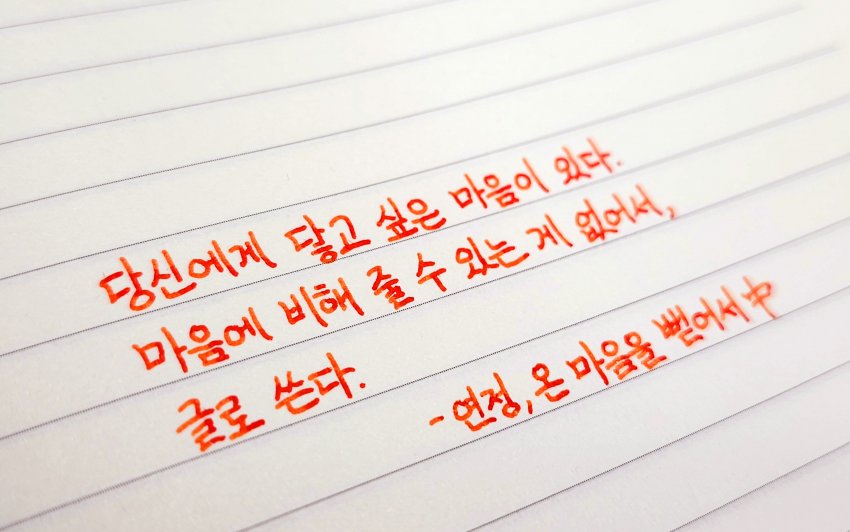 당신에게 닿고 싶은 마음이 있다.
마음에 비해 줄 수 있는 게 없어서,
글로 쓴다.
- 연정, 온 마음을 뻗어서 中